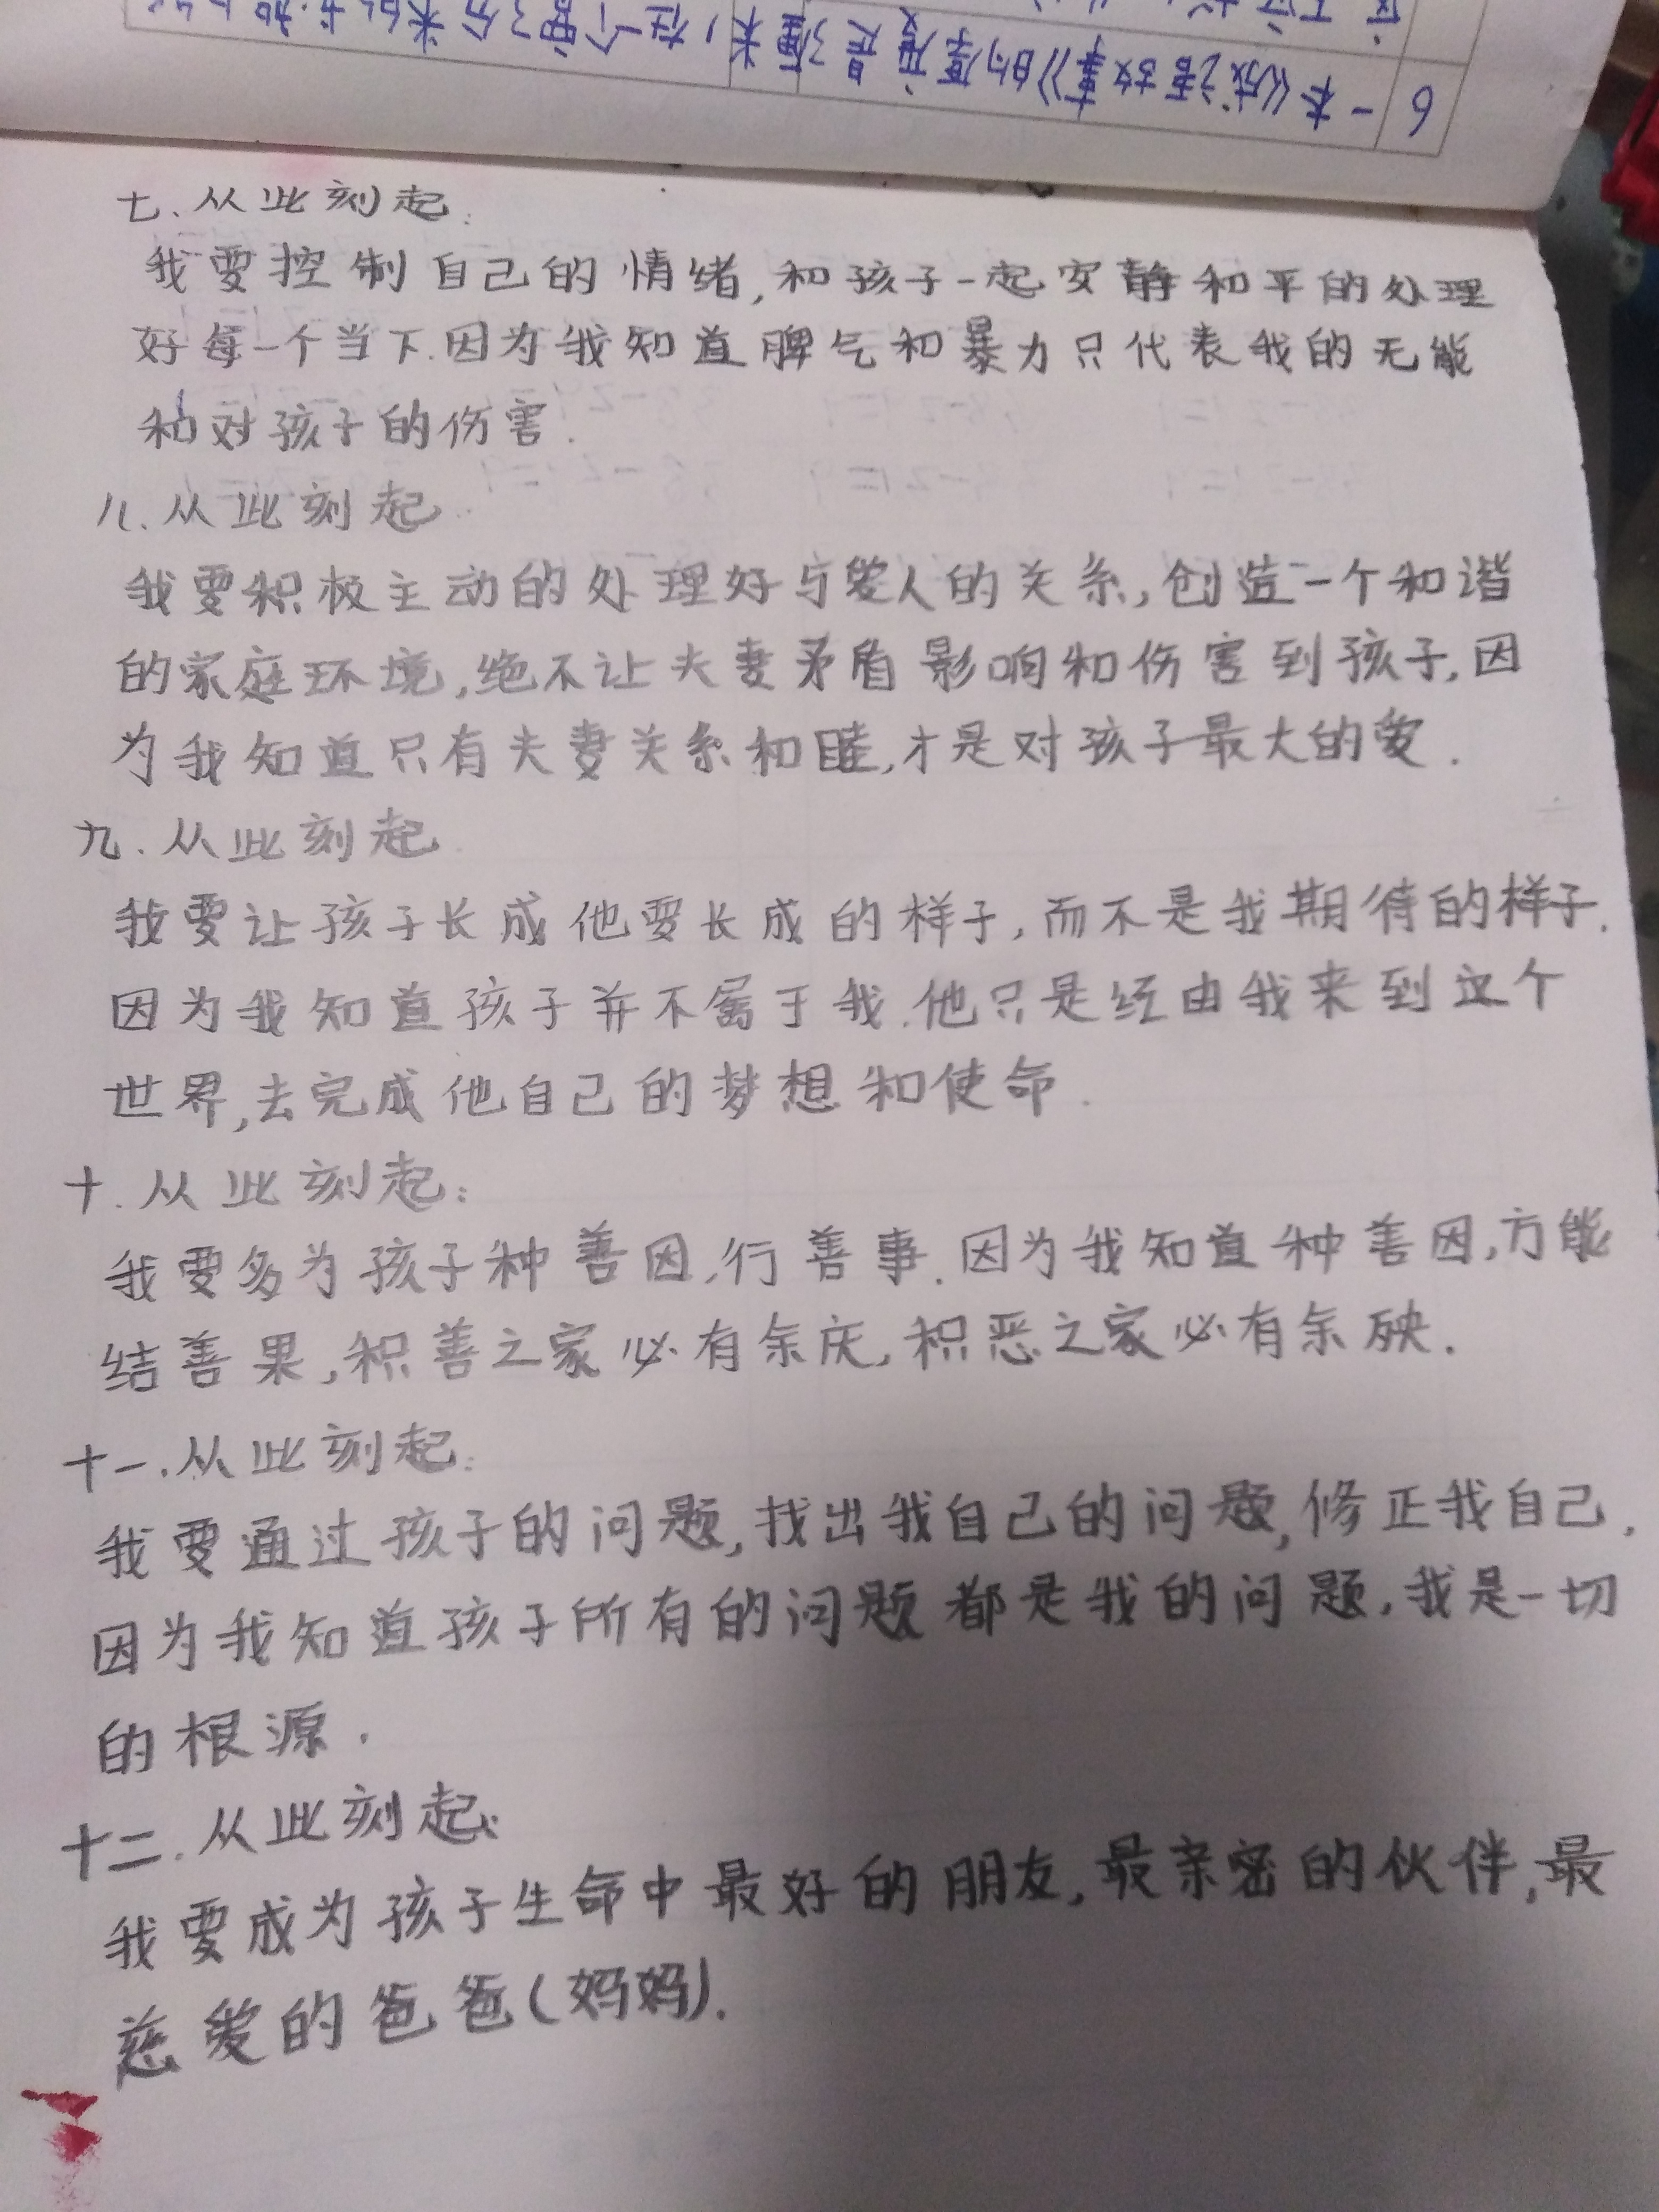 6 一本《成语故事》的厚度是3厘米,在一个高3分米的书架上
七.从此刻起:
我要控制自己的情绪,和孩子一起安静和平的处理
好每一个当下.因为我知道脾气和暴力只代表我的无能
和对孩子的伤害.
八.从此刻起.
我要积极主动的处理好与爱人的关系,创造一个和谐
的家庭环境,绝不让夫妻矛盾影响和伤害到孩子,因
为我知道只有夫妻关系和睦,才是对孩子最大的爱.
九.从此刻起
我要让孩子长成他要长成的样子,而不是我期待的样子.
因为我知道孩子并不属于我.他只是经由我来到这个
世界,去完成他自己的梦想和使命.
十.从此刻起:
我要多为孩子种善因,行善事.因为我知道种善因,方能
结善果,积善之家必有余庆,积恶之家必有余殃.
十一.从此刻起:
我要通过孩子的问题,找出我自己的问题,修正我自己,
因为我知道孩子所有的问题都是我的问题,我是一切
的根源.
十二.从此刻起:
我要成为孩子生命中最好的朋友,最亲密的伙伴,最
慈爱的爸爸(妈妈).